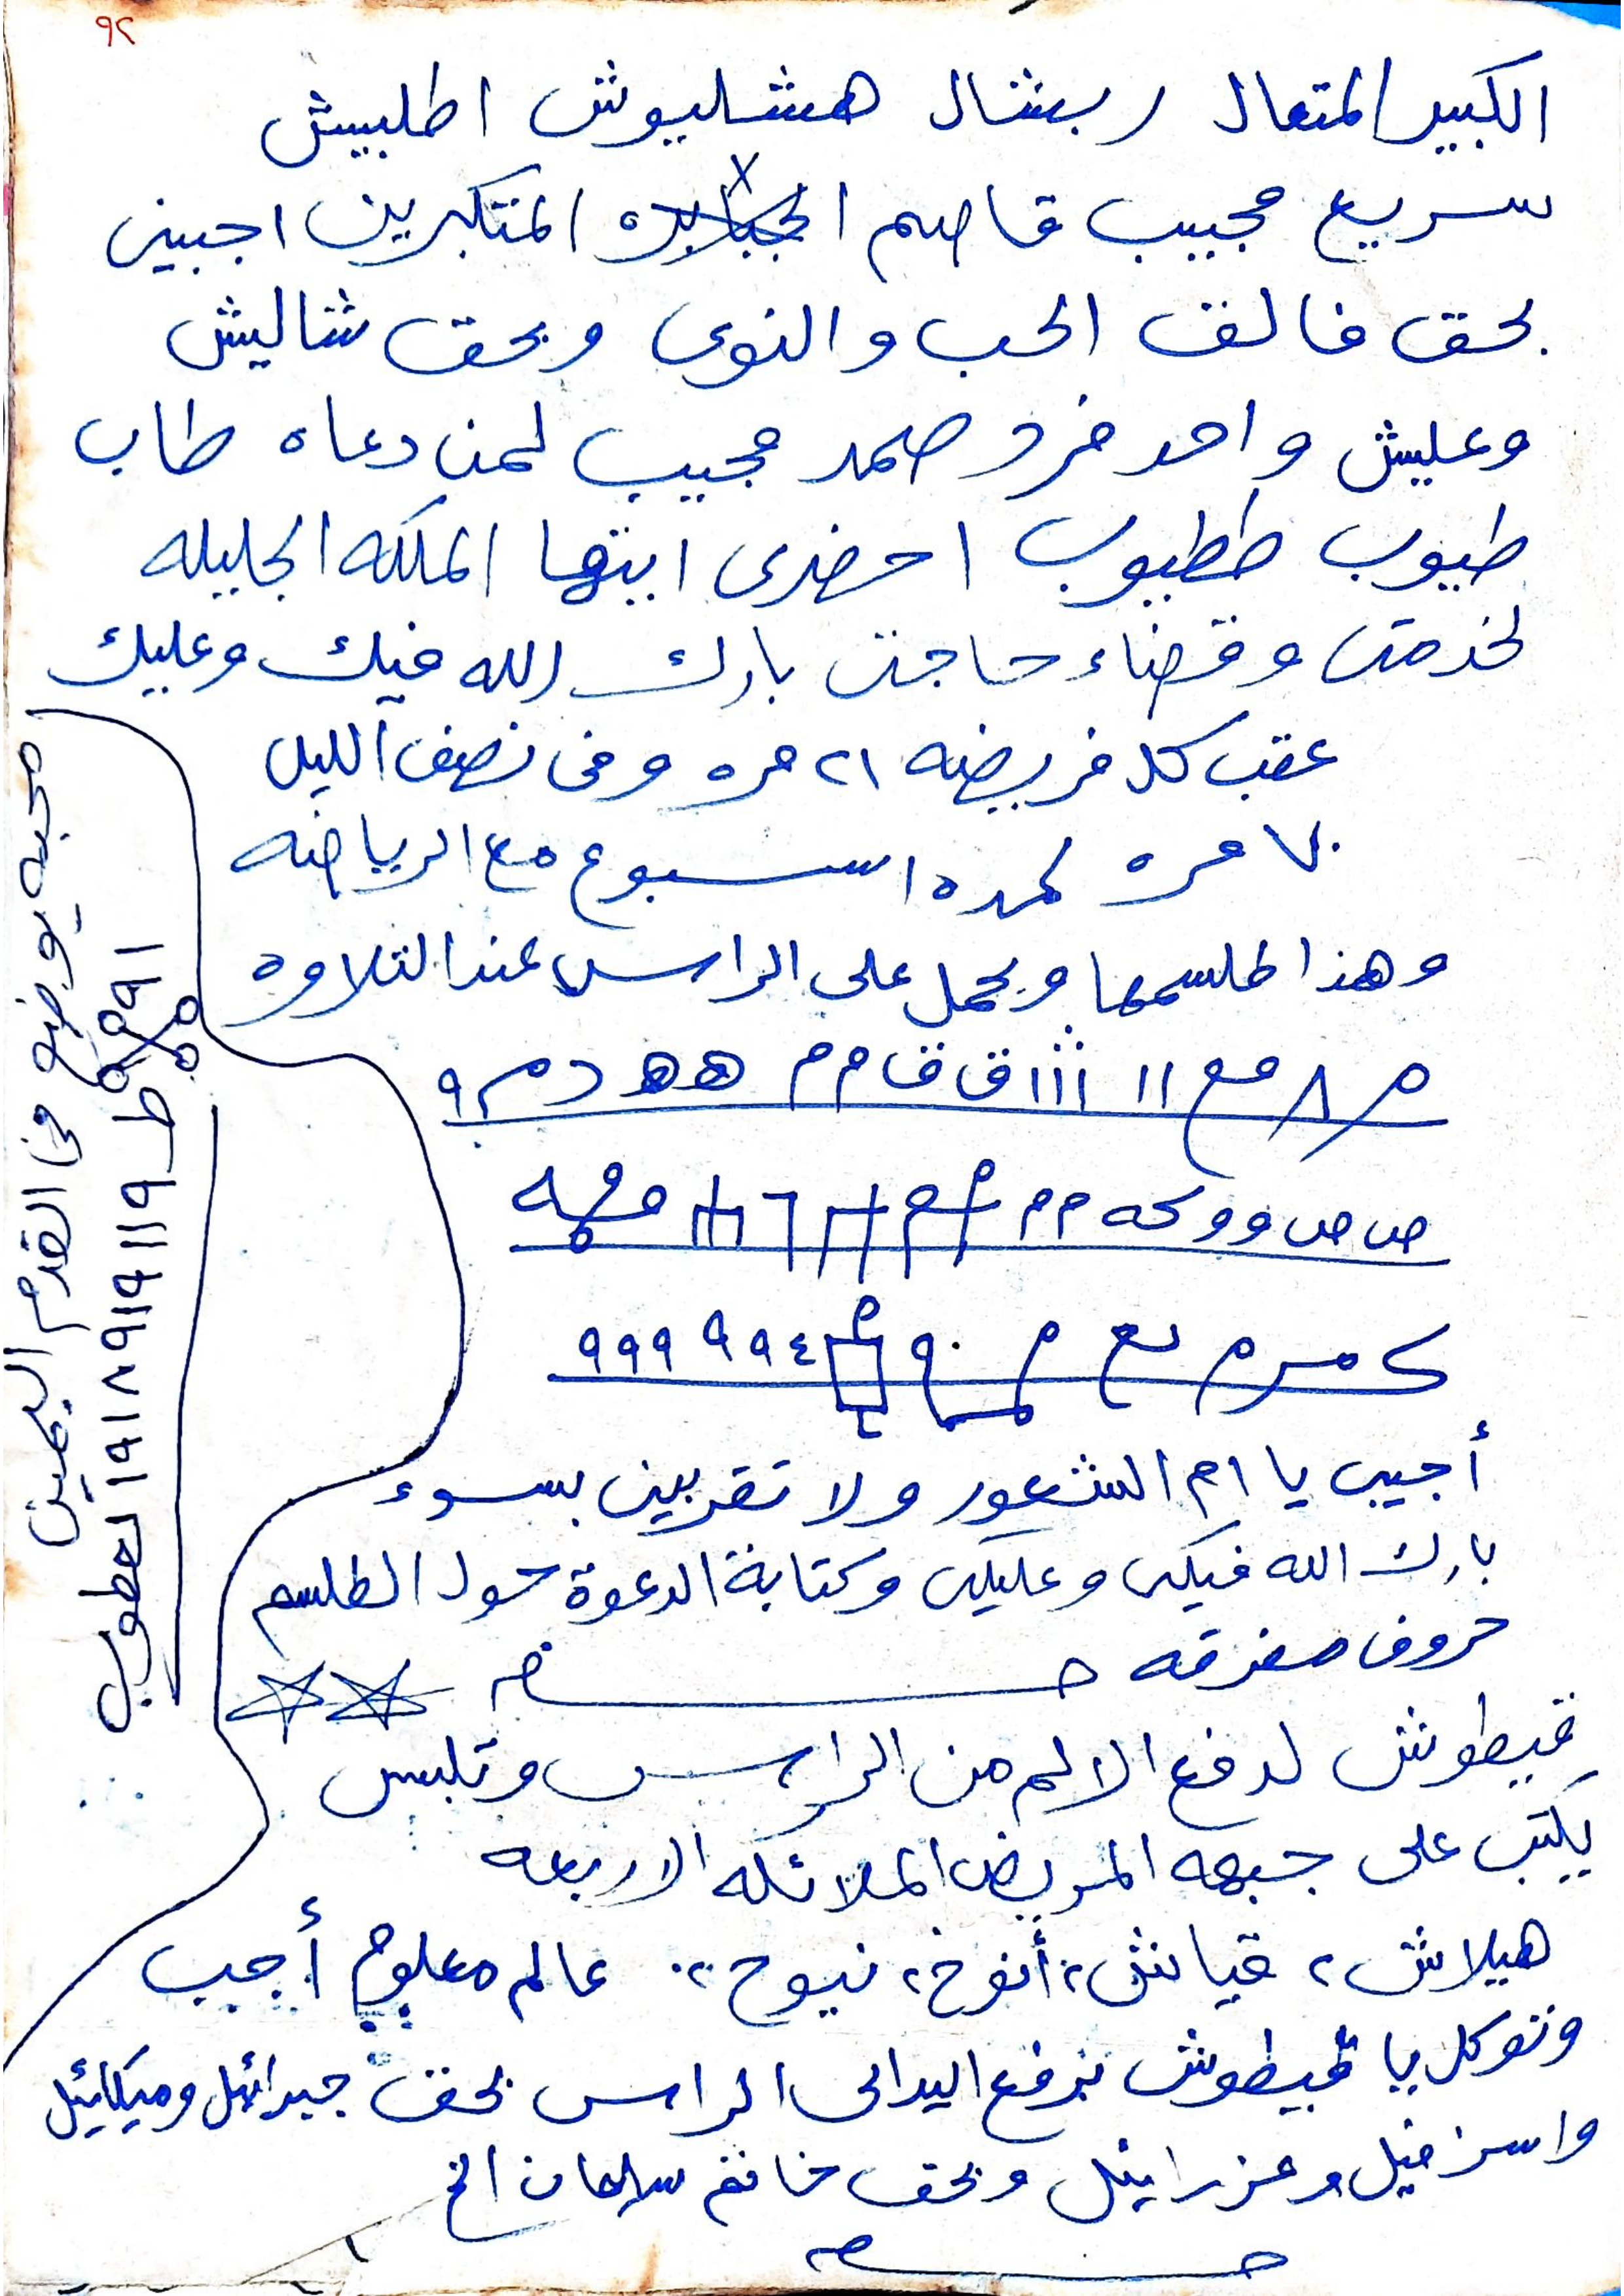 ٩٢
الكبير المتعال ربشال هشليوش اطلبيش
سريع مجيب قاصم الجبابره المتكبرين اجيبى
بحق فالق الحب والنوى وبحق شاليش
وعليش واحد فرد صمد مجيب لمن دعاه طاب
طيوب ططيوب احضرى ايتها الملكه الجليله
لخدمتى وقضاء حاجتى بارك الله فيك وعليك
عقب كل فريضه ٢١ مره وفى نصف الليل
٧٠ مره لمده اسبوع مع الرياضه
وهذا طلسمها ويحمل على الراس عند التلاوه
ااا ق ق م م ه ه د
ص ص و و
٩٤ ٩٩ ٩٩٩
أجيبى يا ام الشعور ولا تقربين بسوء
بارك الله فيكى وعليكى وكتابة الدعوة حول الطلسم
حروف مفرقه
قيطوش لدفع الالم من الراس وتلبس
يكتب على جبهه المريض الملائكه الاربعه
هيلاش، قياش، أنوخ، نيوح، عالم معلوم أجب
وتوكل يا قيطوش برفع اليد الى الراس بحق جبرائيل وميكائيل
واسرافيل وعزرائيل وبحق خاتم سليمان الخ
محبه يوضع فى القدم اليمين